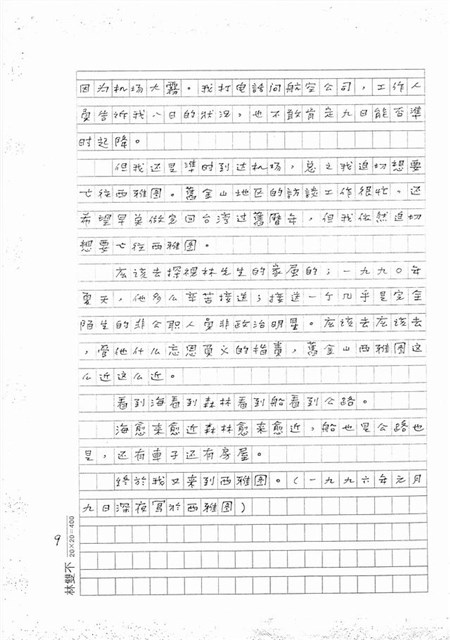 因为机场大霧。我打电話问航空公司，工作人
員告訴我八日的狀況，也不敢肯定九日能否準
时起降。
但我还是準时到达机场，总之我迫切想要
七往西雅图。舊金山地区的訪談工作很忙，还
希望早点做完回台湾过舊曆年，但我依然迫切
想要七往西雅图。
应该去探視林先生的家屋的；一九九〇年
夏天，他多么辛苦接送；接送一个几乎是完全
陌生的非公职人員非政治明星。应该去应该去
，受他什么忘恩負义的指責，舊金山西雅图这
么近这么近。
看到海看到森林看到船看到公路。
海愈来愈近森林愈来愈近，船也是公路也
是，还有車子还有房屋。
終於我又来到西雅图。（一九九六年元月
九日深夜寫於西雅图）
9
20×20=400
林雙不